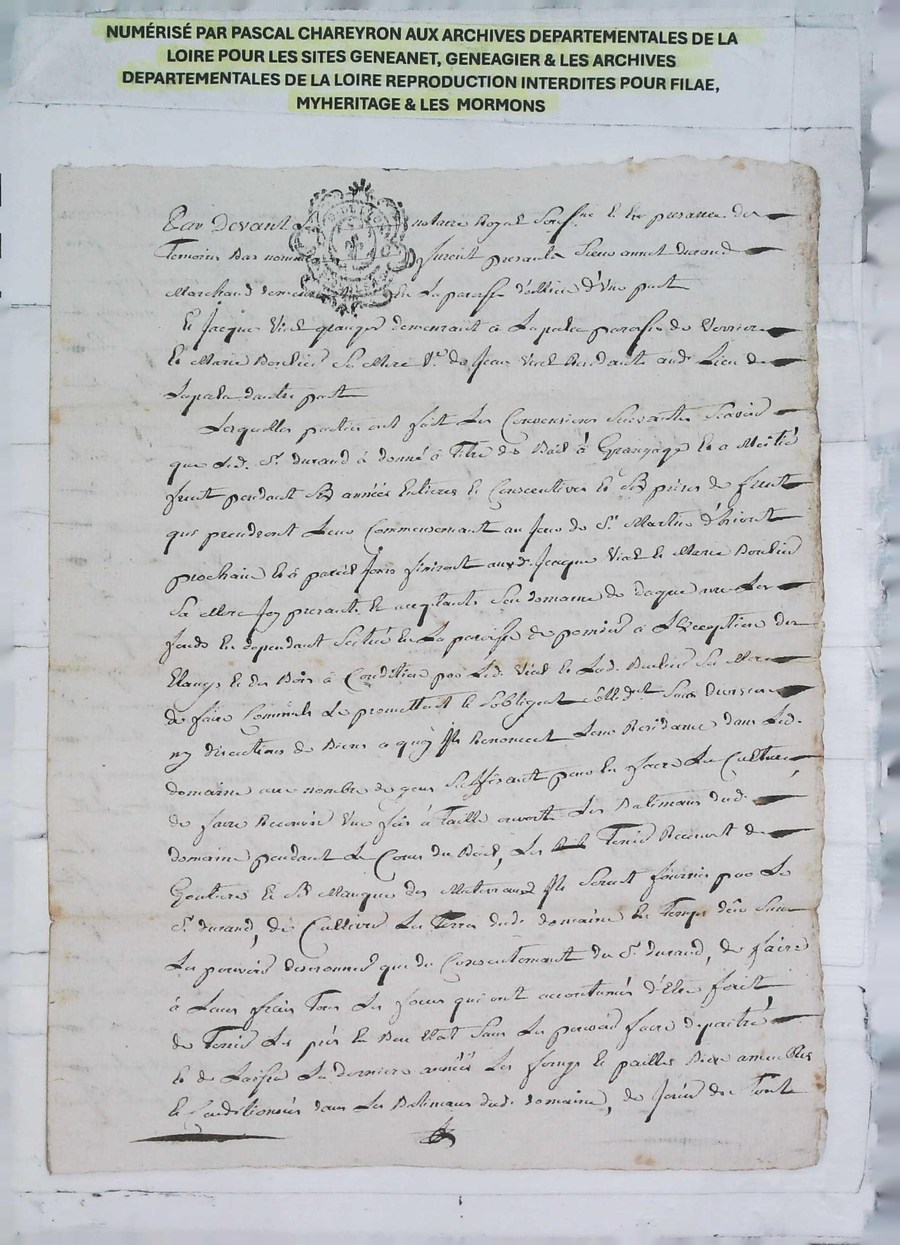 NUMÉRISÉ PAR PASCAL CHAREYRON AUX ARCHIVES DEPARTEMENTALES DE LA
LOIRE POUR LES SITES GENEANET, GENEAGIER & LES ARCHIVES
DEPARTEMENTALES DE LA LOIRE REPRODUCTION INTERDITES POUR FILAE,
MYHERITAGE & LES MORMONS
Par Devant notaire Royal et En presance des
Temoins Bas furent presants Sieur annet durand
Marchand La paroisse d'Vne part
Et Jacque Vial granger demeurant à Lapala paroisse de Verriere
Et Marie Sa Mere Ve de Jean Vial Residante audt Lieu de
Lapala dautre part
Lesquelles parties ont fait Les Convensions Suivantes Scavoir
que Led. Sr durand à donné à Titre de Bail à Grangage Et a Moitié
fruit pendant Six années Entieres Et Consecutives Et Six prises de fruit
qui prendront Leur Commensemant au Jour de St Martin d'hivert
prochain Et à pareil Jour finiront auxd. Jacque Vial Et Marie
Sa Mere Icy presants Et acceptants Son domaine de Les
fonds En dependant Scitué En La paroisse de à L'Exception des
Etangs Et des Bois à Condition par Led. Vial Et Lad. Sa Mere
de faire Comme ils Le promettent Et Sobligent Sans Division
ny discution de Biens a quoy ils Renoncent Leur Residance dans Led.
domaine au nombre de gens Suffisant pour En faire La Culture,
de faire Recouvrir Vne fois à Taille ouverte Les Batimans dud.
domaine pendant Le Cours du Bail, Les Tenir Recouvert de
Goutiere Et Sil Manque des Materiaux ils Seront fournis par Le
Sr durand, de Cultiver Les Terres dud. domaine En Temps dûe Sans
Les pouvoir que du Consentemant du Sr durand, de faire
à Leurs frais Tous Les qui ont accoutumés d'Etre fait
de Tenir Les prés En Bon Etat Sans Les pouvoir faire
Et de Laisser La derniere année Les foings Et pailles Bien
Et Conditionnés dans Les Batimans dud. domaine, de Jouir du Tout